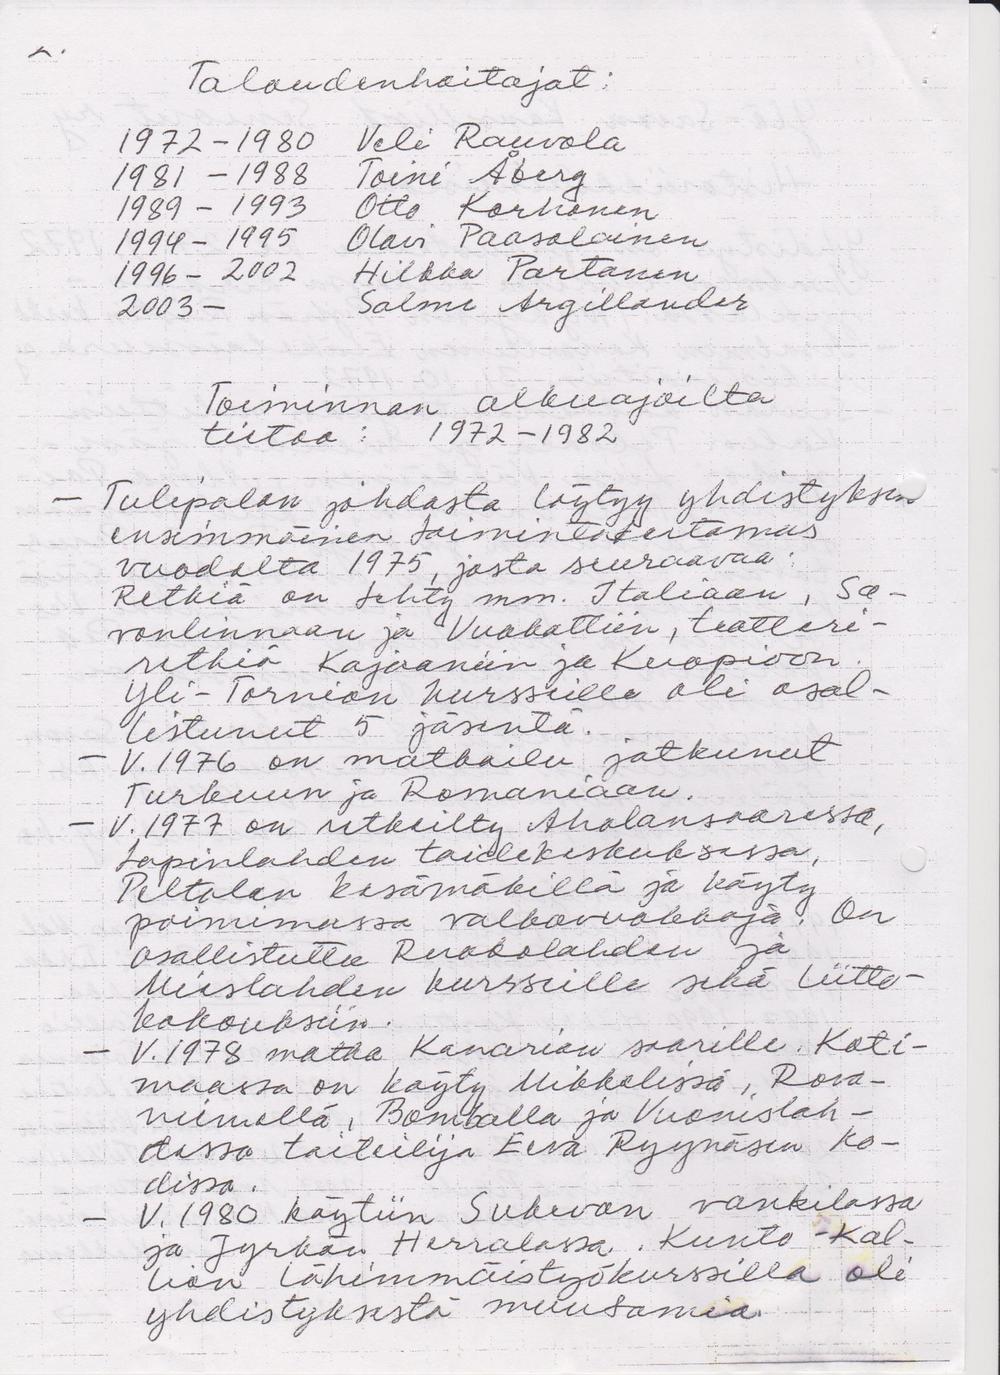 2.
Taloudenhoitajat:
1972-1980 Veli Rauvola
1981 -1988 Toini Åberg
1989 - 1993 Otto Korhonen
1994 - 1995 Olavi Paasolainen
1996 - 2002 Hilkka Partanen
2003 - Salme Argillander
Toiminnan alkuajoilta
tietoa : 1972-1982
- Tulipalon johdosta löytyy yhdistyksen
ensimmäinen toimintakertomus
vuodelta 1975, josta seuraavaa:
Retkiä on tehty mm. Italiaan, Sa-
vonlinnaan ja Vuokattiin, teatteri-
retkiä Kajaaniin ja Kuopioon.
Yli-Tornion kursseille oli osal-
listunut 5 jäsentä.
- V. 1976 on matkailu jatkunut
Turkuun ja Romaniaan.
- V. 1977 on retkeilty Aholansaaressa,
Lapinlahden taidekeskuksessa,
Peltolan kesämökillä ja käyty
poimimassa valkovuokkoja. On
osallistuttu Ruokolahden ja
Mieslahden kursseille sekä liitto-
kokouksiin.
- V. 1978 matka Kanarian saarille. Koti-
maassa on käyty Mikkelissä, Rova-
niemellä, Bomballa ja Vuonislah-
dessa taiteilija Eeva Ryynäsen ko-
dissa.
- V. 1980 käytiin Sukevan vankilassa
ja Jyrkän Herralassa. Kunto-Kal-
lion lähimmäistyökurssilla oli
yhdistyksestä muutamia.